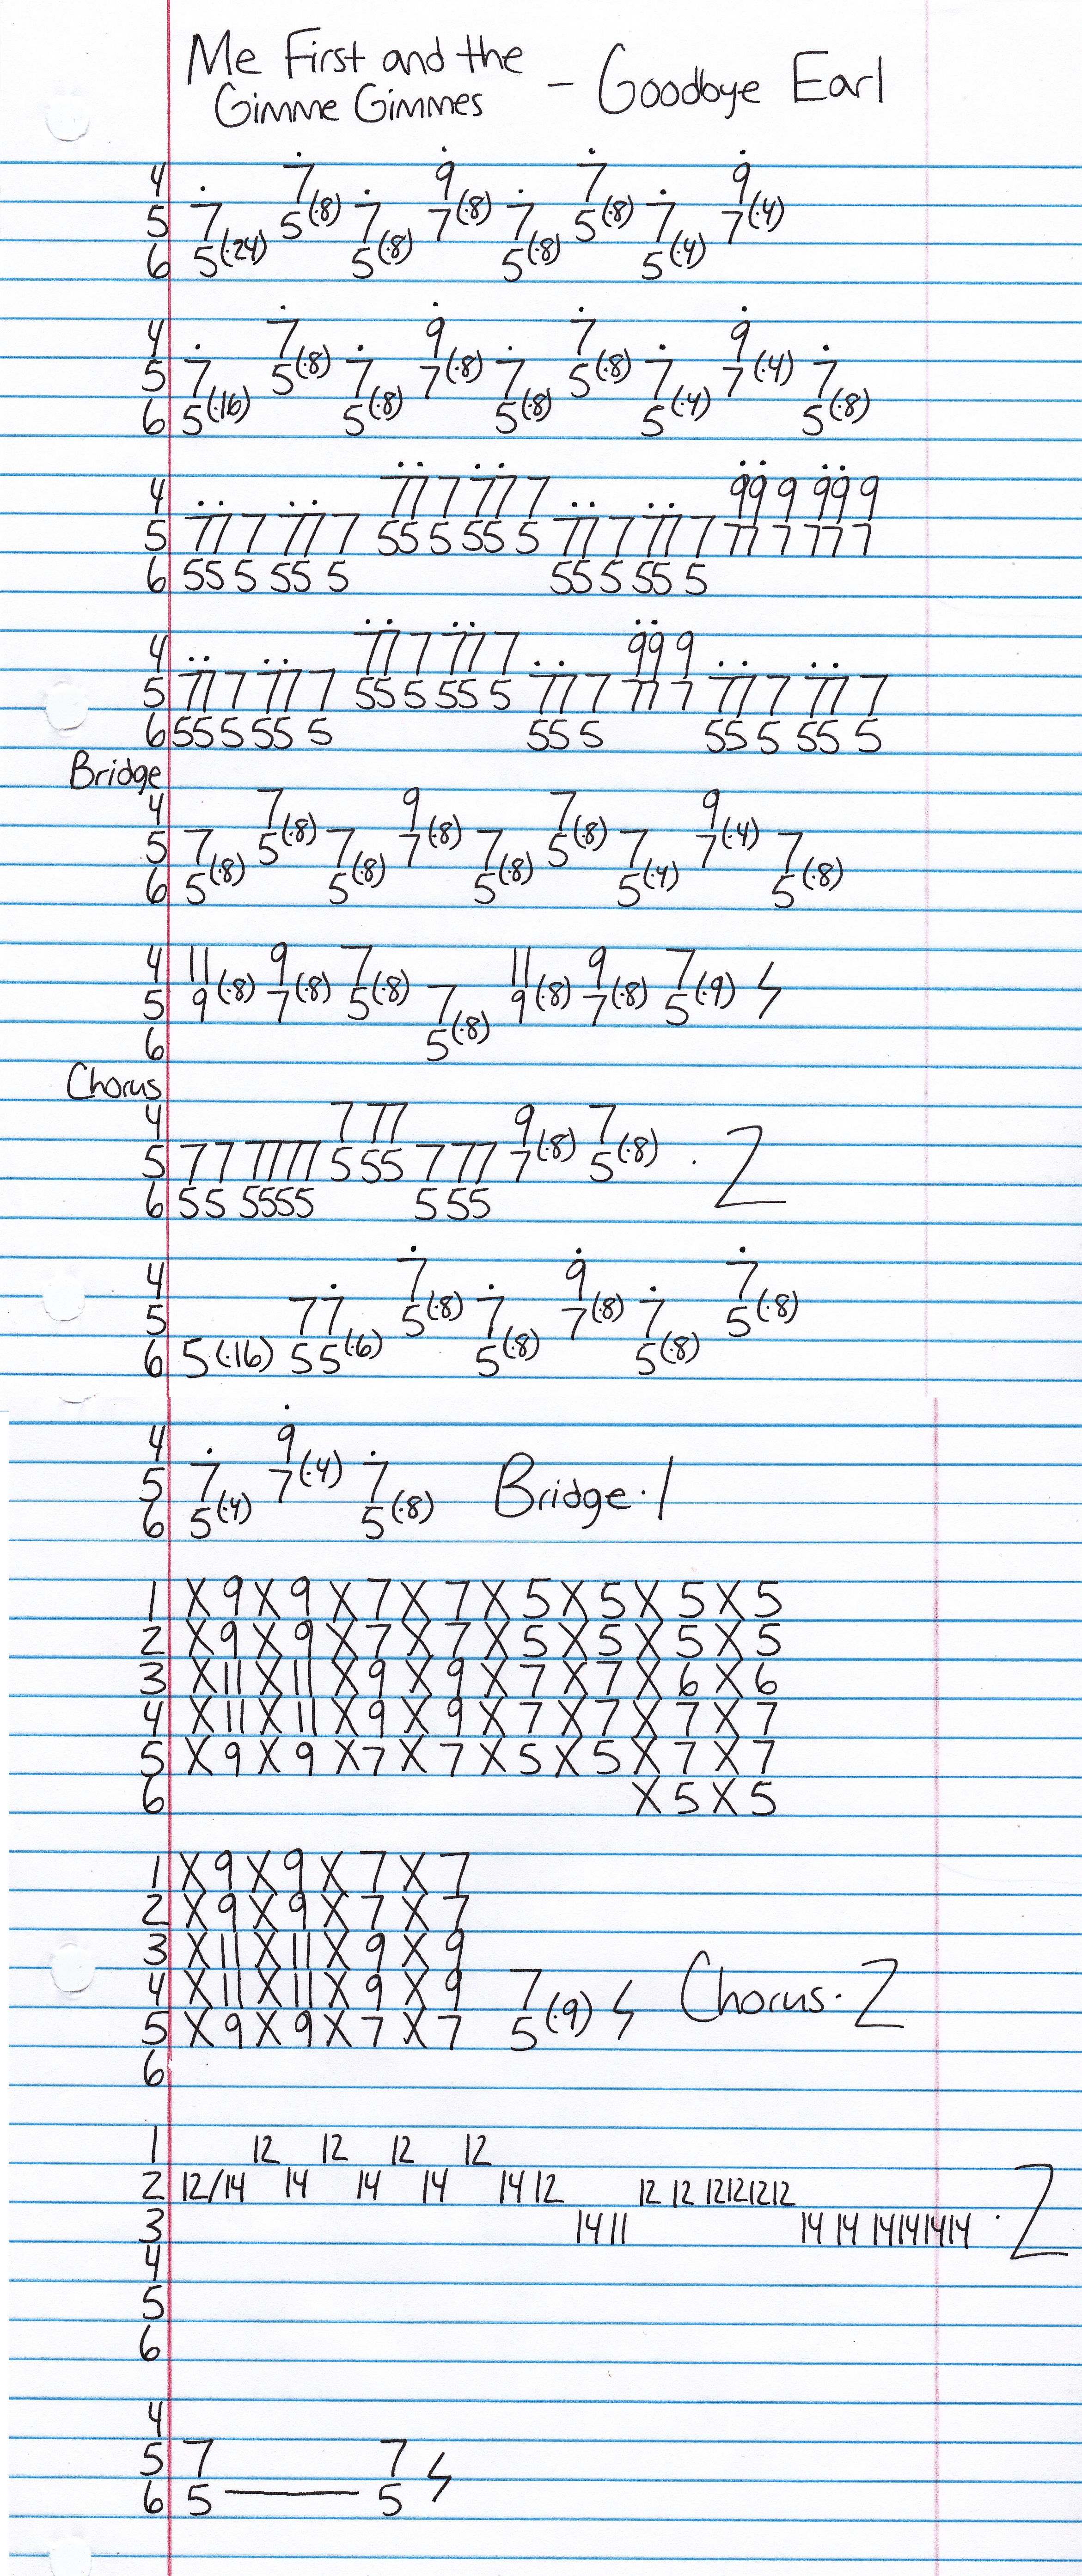 Me First and the
Gimme Gimmes – Goodbye Earl
4 7 9 7 9
5 7 5(·8) 7 7(·8) 7 5(·8) 7 7(·4)
6 5(·24) 5(·8) 5(·8) 5(·4)
4 7 9 7 9
5 7 5(·8) 7 7(·8) 7 5(·8) 7 7(·4) 7
6 5(·16) 5(·8) 5(·8) 5(·4) 5(·8)
4 77 7 77 7 99 9 99 9
5 77 7 77 7 55 5 55 5 77 7 77 7 77 7 77 7
6 55 5 55 5 55 5 55 5
4 77 7 77 7 99 9
5 77 7 77 7 55 5 55 5 77 7 77 7 77 7 77 7
6 55 5 55 5 55 5 55 5 55 5
Bridge
4 7 9 7 9
5 7 5(·8) 7 7(·8) 7 5(·8) 7 7(·4) 7
6 5(·8) 5(·8) 5(·8) 5(·4) 5(·8)
4 11 9 7 11 9 7
5 9(·8) 7(·8) 5(·8) 7 9(·8) 7(·8) 5(·9) ϟ
6 5(·8)
Chorus
4 7 77 9 7
5 77 7777 555 777 7(·8) 5(·8) ·2
6 55 5555 555
4 7 9 7
5 77 5(·8) 7 7(·8) 7 5(·8)
6 5(·16) 55(·6) 5(·8) 5(·8)
4 9
5 7 7(·4) 7 Bridge·1
6 5(·4) 5(·8)
1 X 9 X 9 X 7 X 7 X 5 X 5 X 5 X 5
2 X 9 X 9 X 7 X 7 X 5 X 5 X 5 X 5
3 X 11 X 11 X 9 X 9 X 7 X 7 X 6 X 6
4 X 11 X 11 X 9 X 9 X 7 X 7 X 7 X 7
5 X 9 X 9 X 7 X 7 X 5 X 5 X 7 X 7
6 X 5 X 5
1 X 9 X 9 X 7 X 7
2 X 9 X 9 X 7 X 7
3 X 11 X 11 X 9 X 9
4 X 11 X 11 X 9 X 9 7
5 X 9 X 9 X 7 X 7 5(·9) ϟ Chorus·2
6
1 12 12 12 12
2 12/14 14 14 14 14 12 12 12 12121212
3 14 11 14 14 14141414 ·2
4
5
6
4
5 7 7
6 5 — 5 ϟ